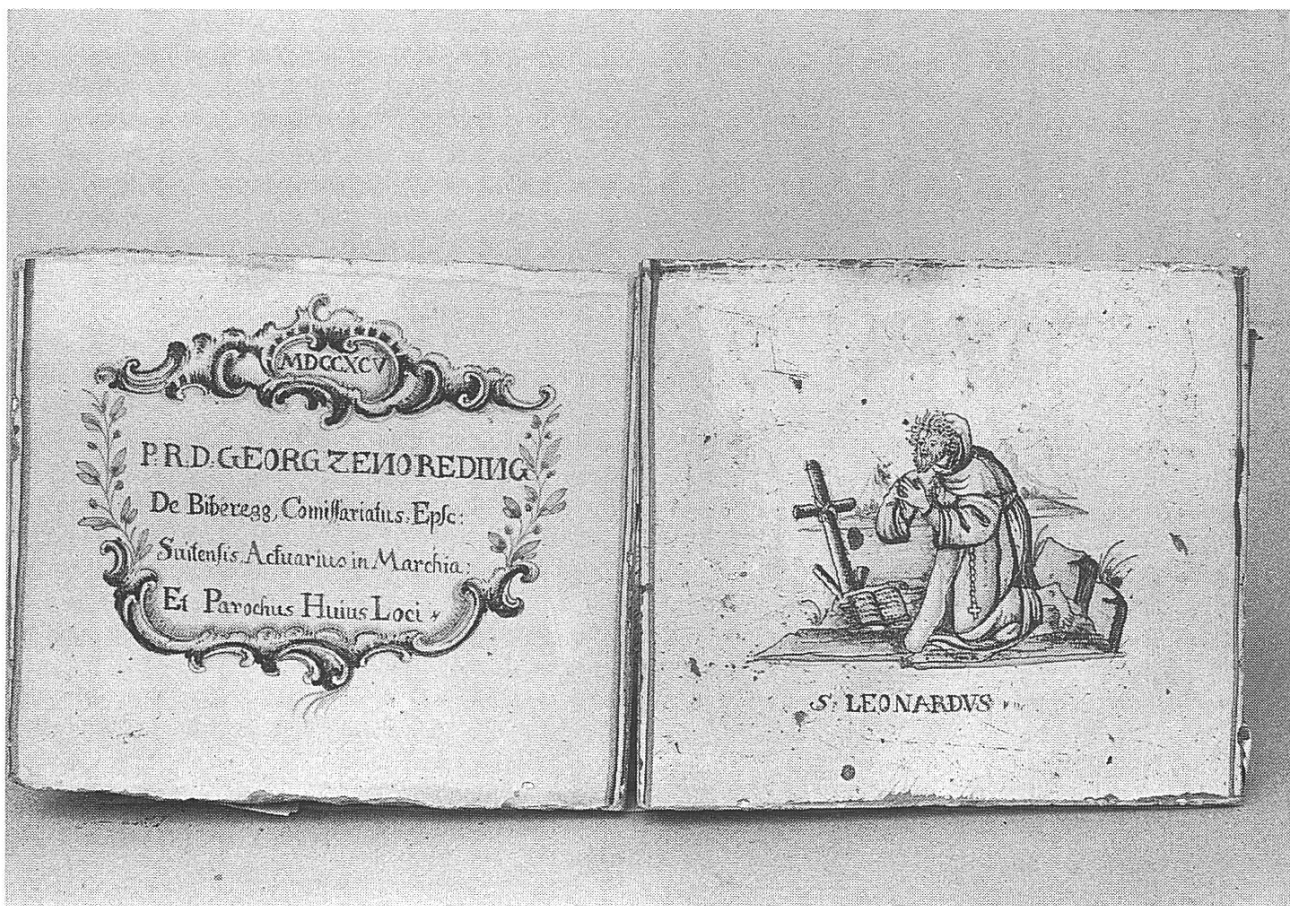 MDCCXCV
P.R.D. GEORG ZENO REDING
De Biberegg, Comissariatus. Epsc:
Suitensis. Actuarius in Marchia:
Et Parochus Huius Loci
S. LEONARDVS